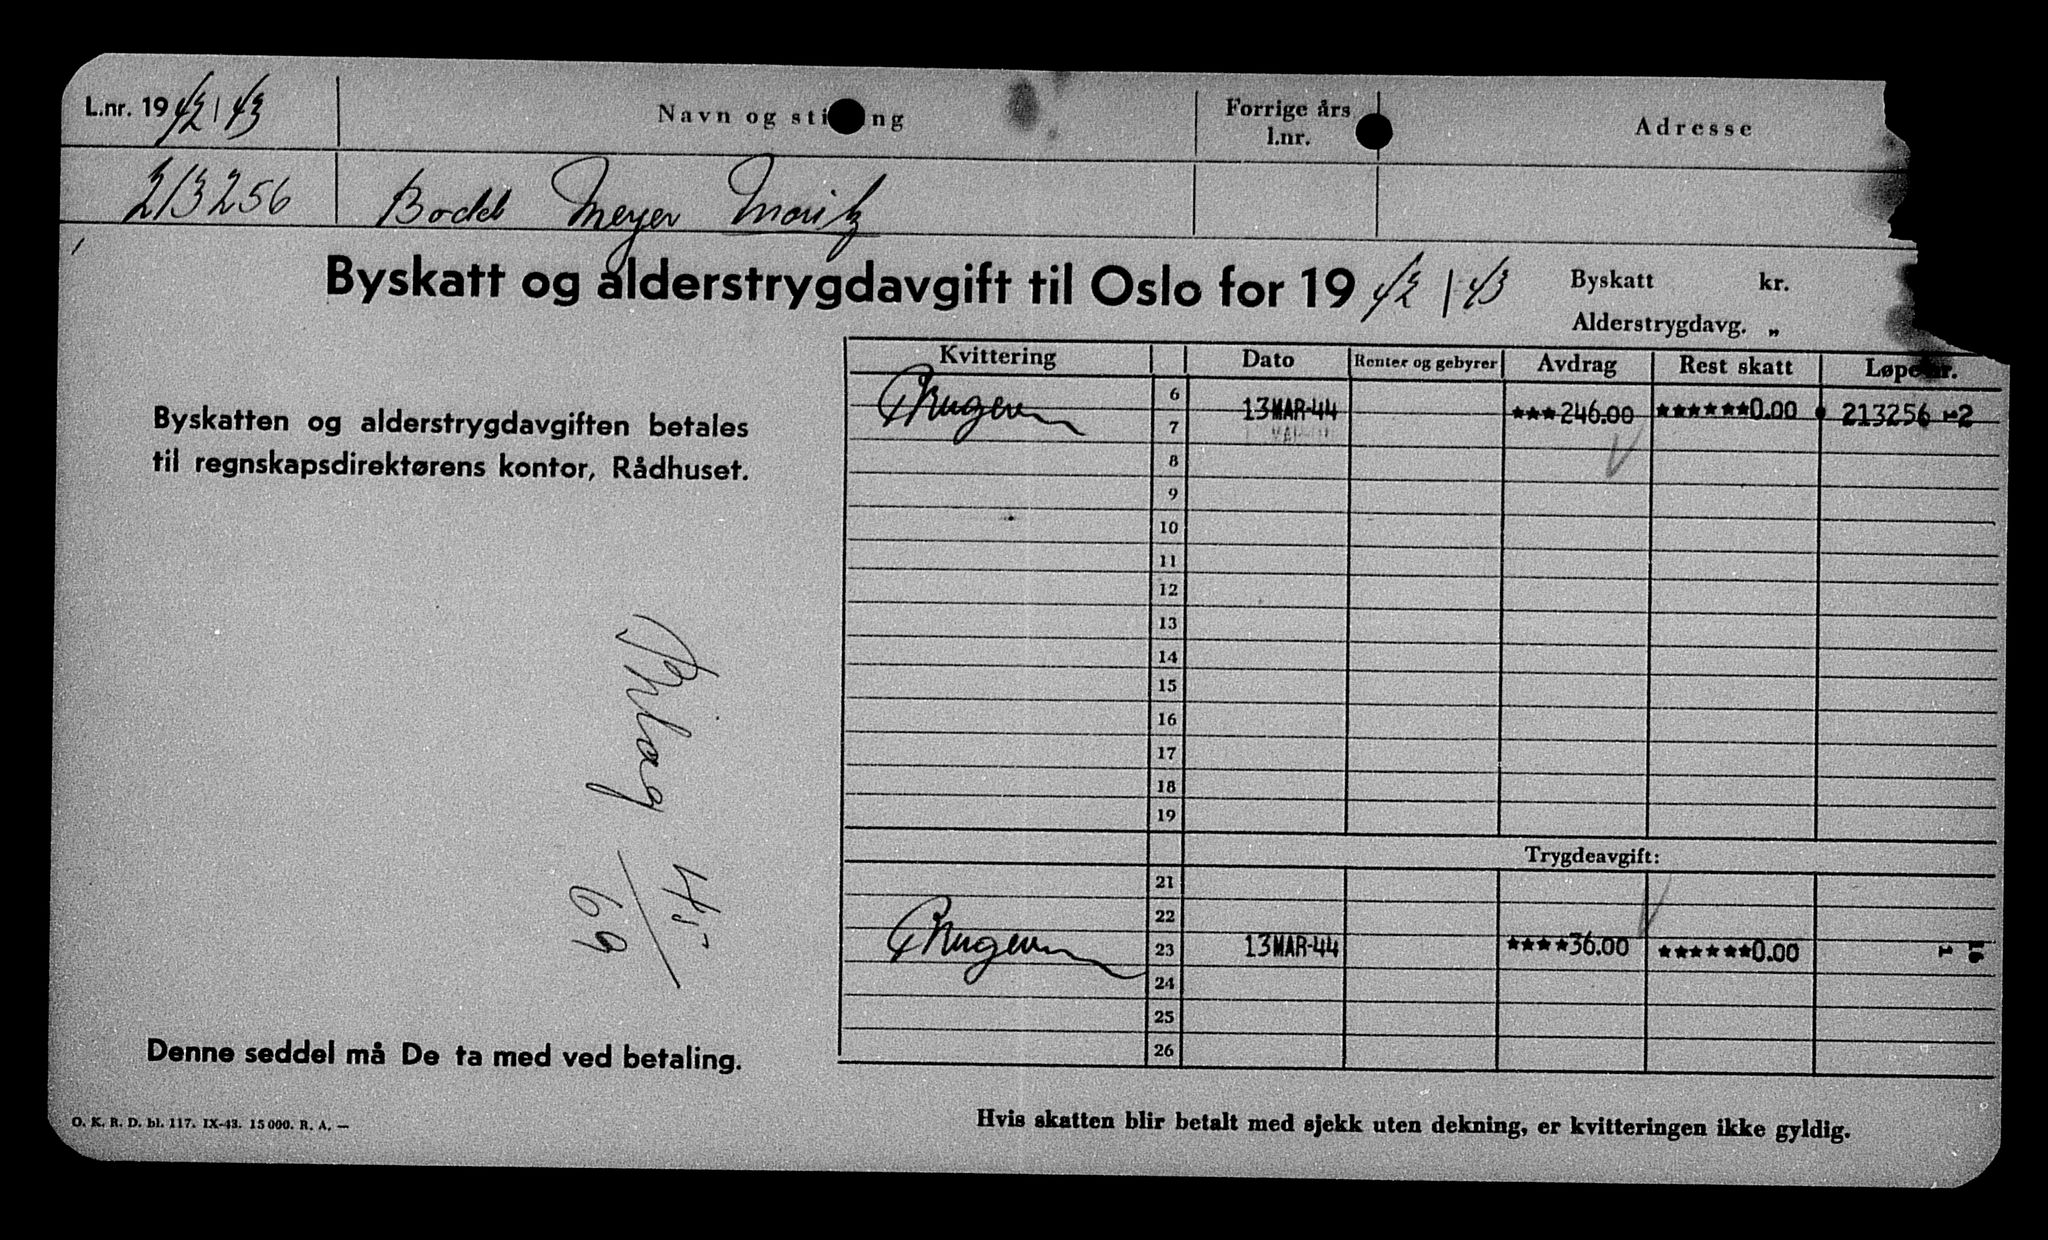 L.nr. 19 42/43 Navn og stilling Forrige års l.nr. Adresse
213256 Bodd Meyer Moritz
Byskatt og alderstrygdavgift til Oslo for 19 42/43
Byskatt kr.
Alderstrygdavg. „
Byskatten og alderstrygdavgiften betales
til regnskapsdirektørens kontor, Rådhuset.
Bilag 45/69
Denne seddel må De ta med ved betaling.
O. K. R. D. bl. 117. IX-43. 15 000. R. A. —
Kvittering Dato Renter og gebyrer Avdrag Rest skatt Løpenr.
6
7 13 MAR-44 ★★★246.00 ★★★★★★0.00 213256
8
9
10
11
12
13
14
15
16
17
18
19
Trygdeavgift:
21
22
23 13 MAR-44 ★★★★36.00 ★★★★★★0.00
24
25
26
Hvis skatten blir betalt med sjekk uten dekning, er kvitteringen ikke gyldig.